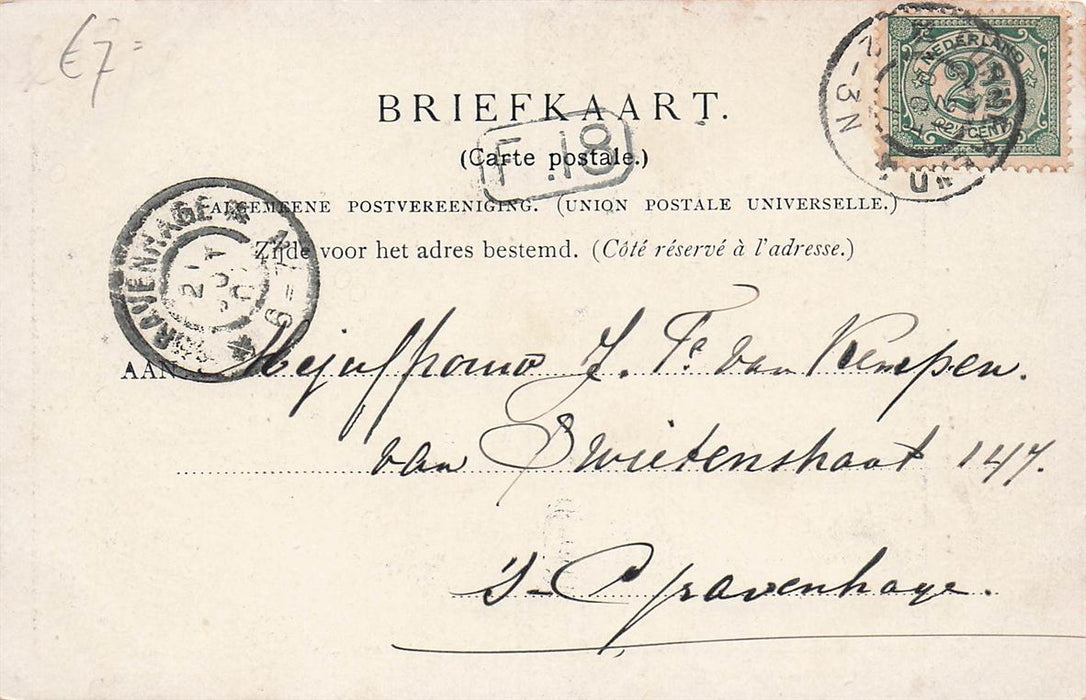 €7=
BRIEFKAART.
(Carte postale.)
F.18
ALGEMEENE POSTVEREENIGING. (UNION POSTALE UNIVERSELLE.)
Zijde voor het adres bestemd. (Côté réservé à l'adresse.)
NEDERLAND
2½
2½ CENT
2-3N
GRAVENHAGE
21
AAN Mejuffrouw J. Fe van Kempen.
van Swietenstraat 147.
's-Gravenhage.